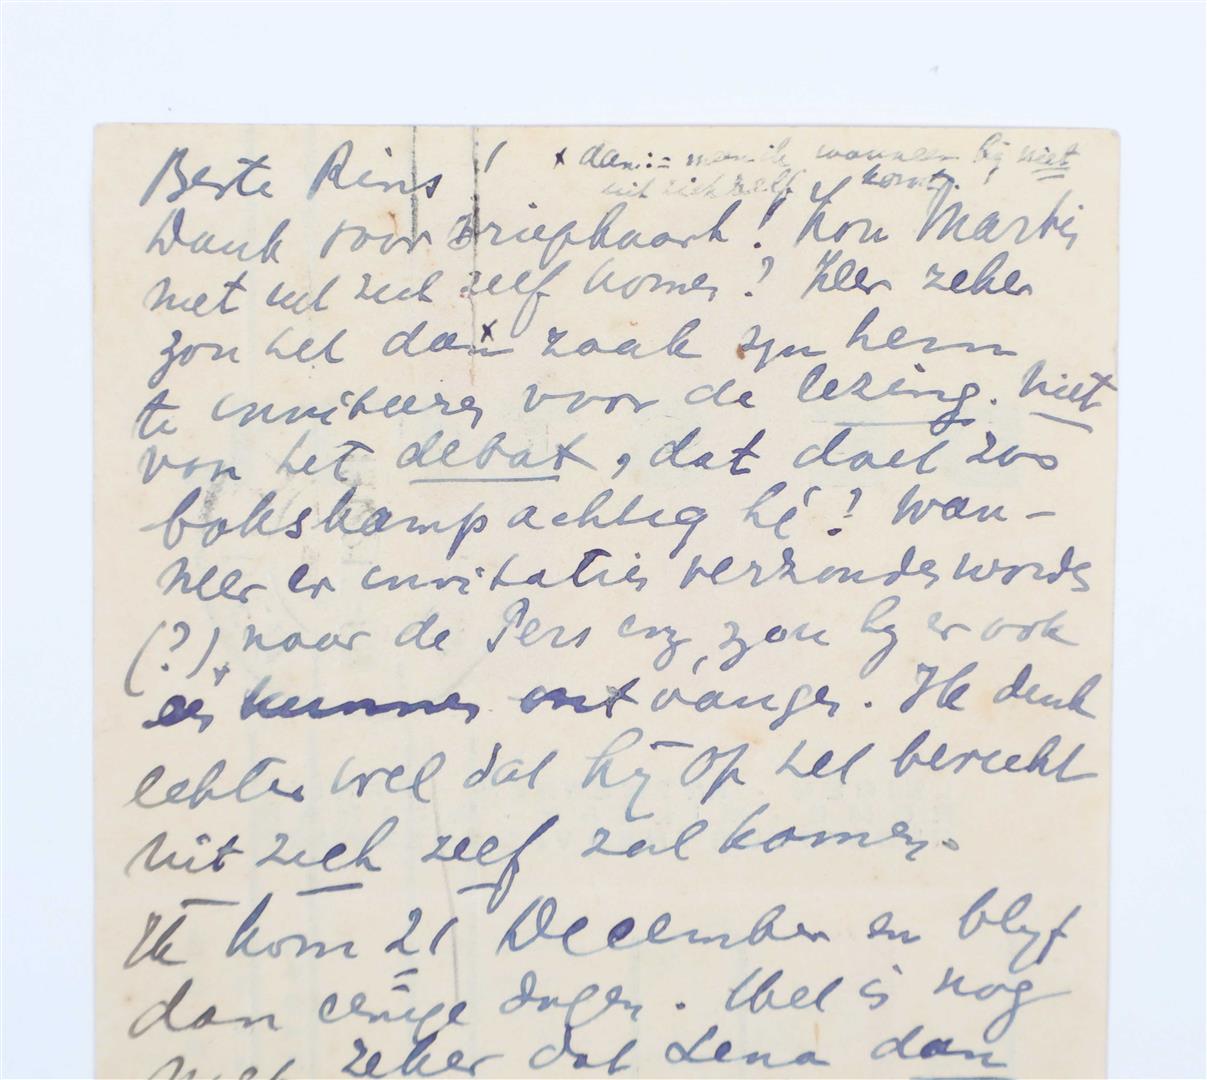 Beste Rins!
x dan:= wanneer hij niet
uit zichzelf komt!
Dank voor briefkaart! Kon Martis
niet uit zich zelf komen? Zeer zeker
zou het dan x zaak zijn hem
te inviteeren voor de lezing. Niet
van het debat, dat doet zoo
bokskampachtig hè? Wan-
neer er invitaties verzonden worden
(?) naar de Pers enz, zou hij er ook
een kunnen ontvangen. Ik denk
echter wel dat hij op het bericht
uit zich zelf zal komen.
Ik kom 21 December en blijf
dan eenige dagen. Wel is nog
niet zeker dat Lena dan